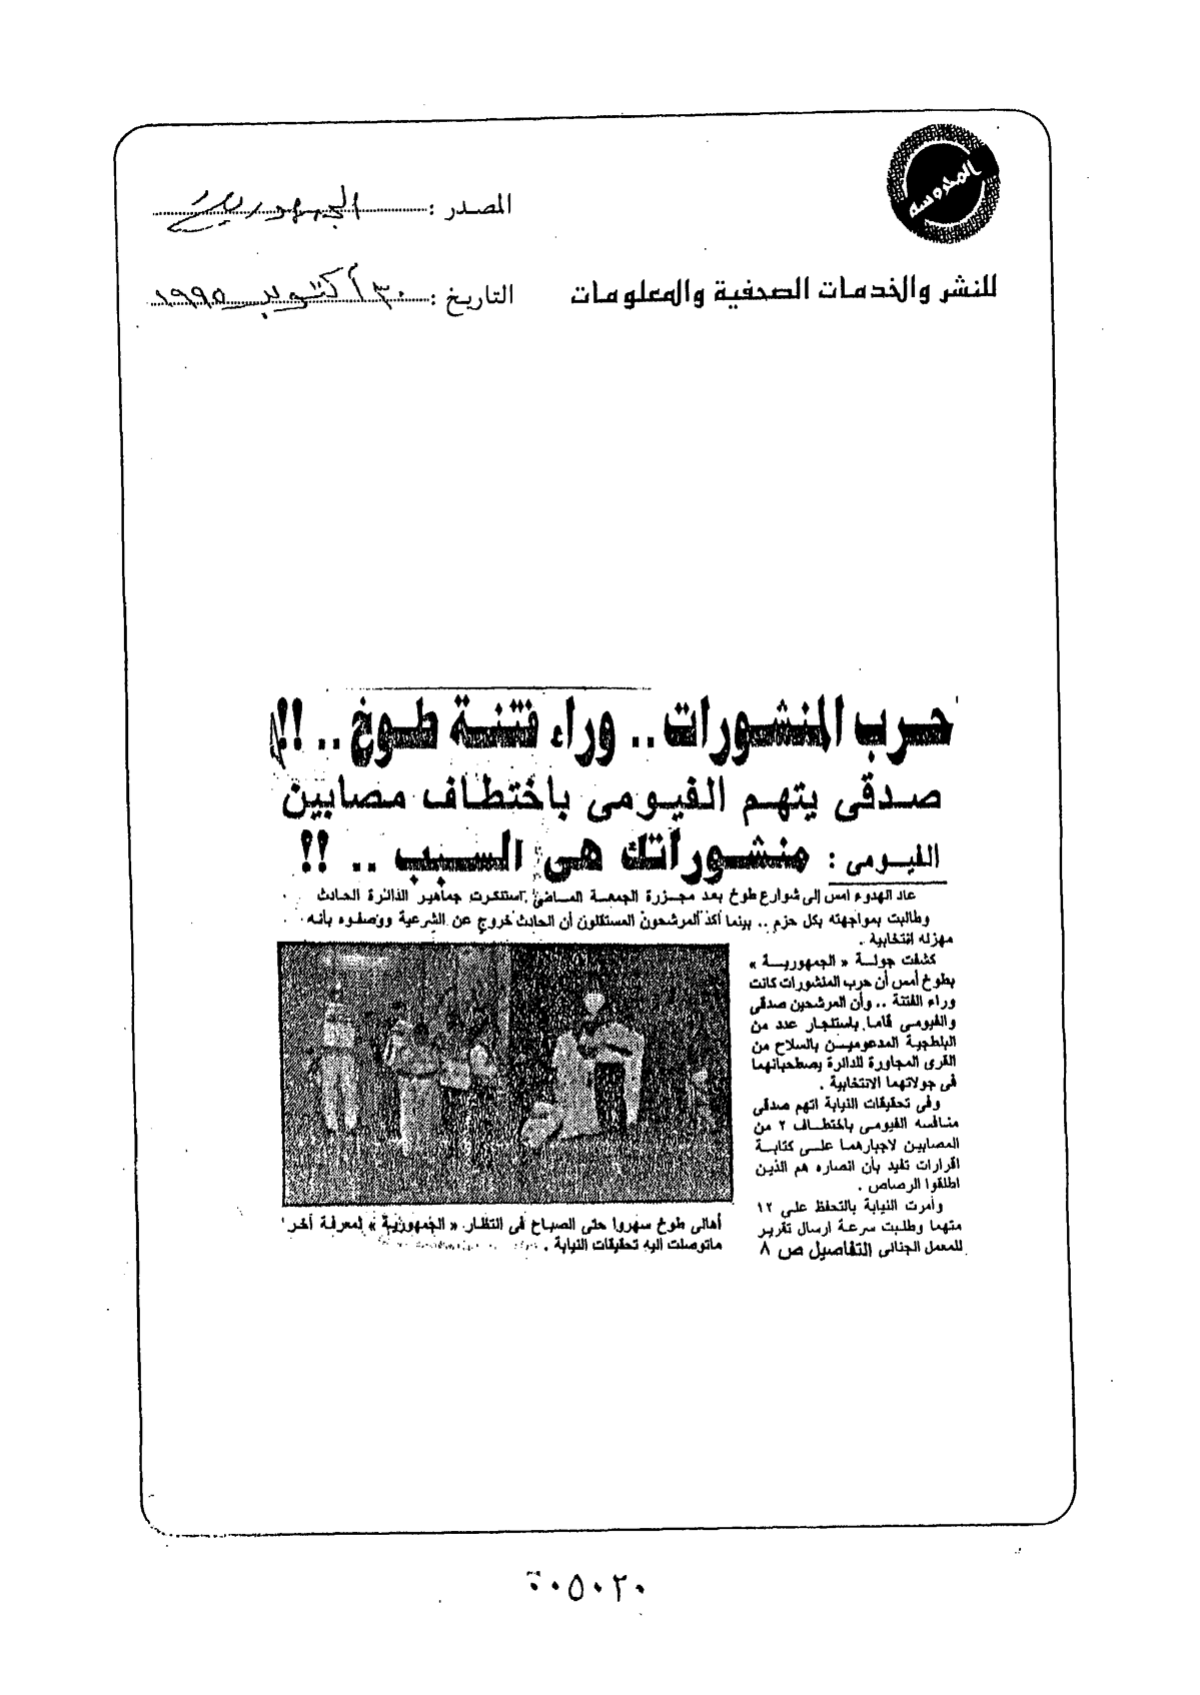 المحروسة
المصدر : الجمهورية
للنشر والخدمات الصحفية والمعلومات
التاريخ : ٣٠ أكتوبر ١٩٩٥
حرب المنشورات .. وراء فتنة طوخ .. !!
صدقى يتهم الفيومى باختطاف مصابين
الفيومى : منشوراتك هى السبب .. !!
عاد الهدوء امس إلى شوارع طوخ بعد مجزرة الجمعة الماضى . استنكرت جماهير الدائرة الحادث
وطالبت بمواجهته بكل حزم .. بينما أكد المرشحون المستقلون أن الحادث خروج عن الشرعية ووصفوه بأنه
مهزله انتخابية .
كشفت جولة « الجمهورية »
بطوخ أمس أن حرب المنشورات كانت
وراء الفتنة .. وأن المرشحين صدقى
والفيومى قاما باستئجار عدد من
البلطجية المدعومين بالسلاح من
القرى المجاورة للدائرة يصطحبانهما
فى جولاتهما الانتخابية .
وفى تحقيقات النيابة اتهم صدقى
منافسه الفيومى باختطاف ٢ من
المصابين لاجبارهما على كتابة
اقرارات تفيد بأن انصاره هم الذين
اطلقوا الرصاص .
وأمرت النيابة بالتحفظ على ١٢
متهما وطلبت سرعة ارسال تقرير
للمعمل الجنائى التفاصيل ص ٨
أهالى طوخ سهروا حتى الصباح فى انتظار « الجمهورية » لمعرفة أخر
ماتوصلت اليه تحقيقات النيابة .
٠٠٥٠٢٠